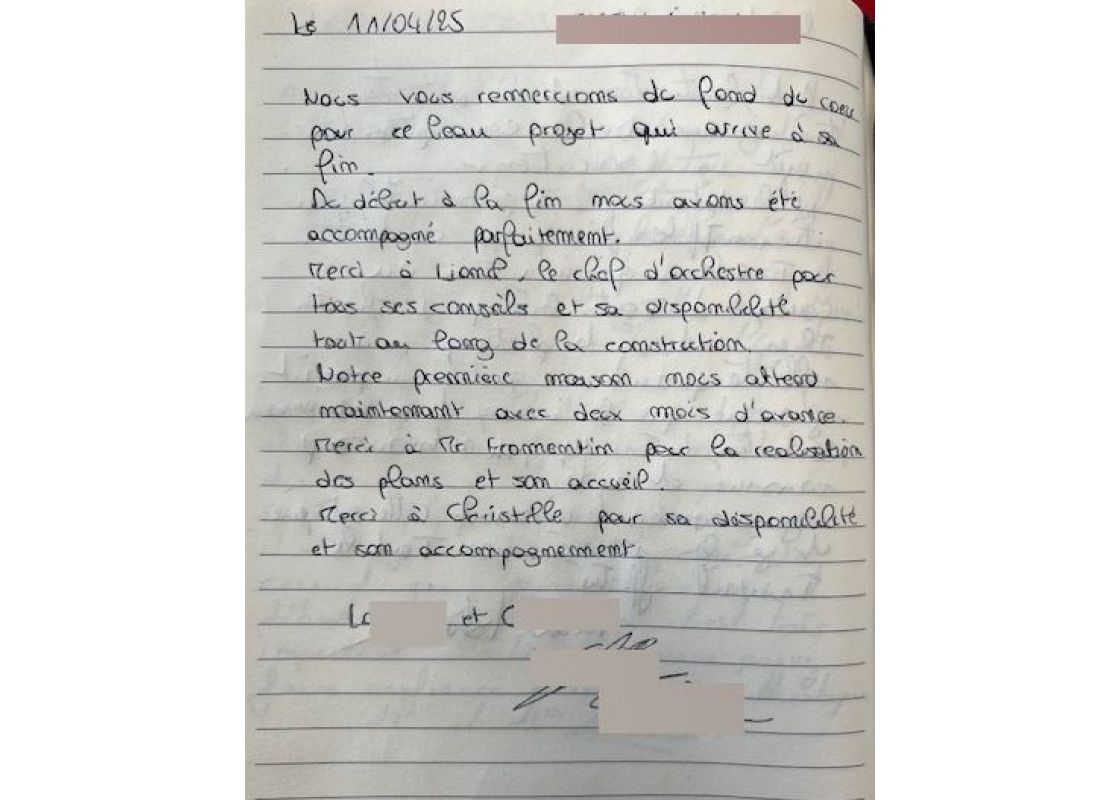 Le 11/04/25
Nous vous remercions du fond du coeur
pour ce beau projet qui arrive à sa
fin.
Du début à la fin nous avons été
accompagné parfaitement.
Merci à Lionel, le chef d'orchestre pour
tous ses conseils et sa disponibilité
tout au long de la construction.
Notre première maison nous attend
maintenant avec deux mois d'avance.
Merci à Mr Fromentin pour la realisation
des plans et son accueil.
Merci à Christelle pour sa disponibilité
et son accompagnement.
et